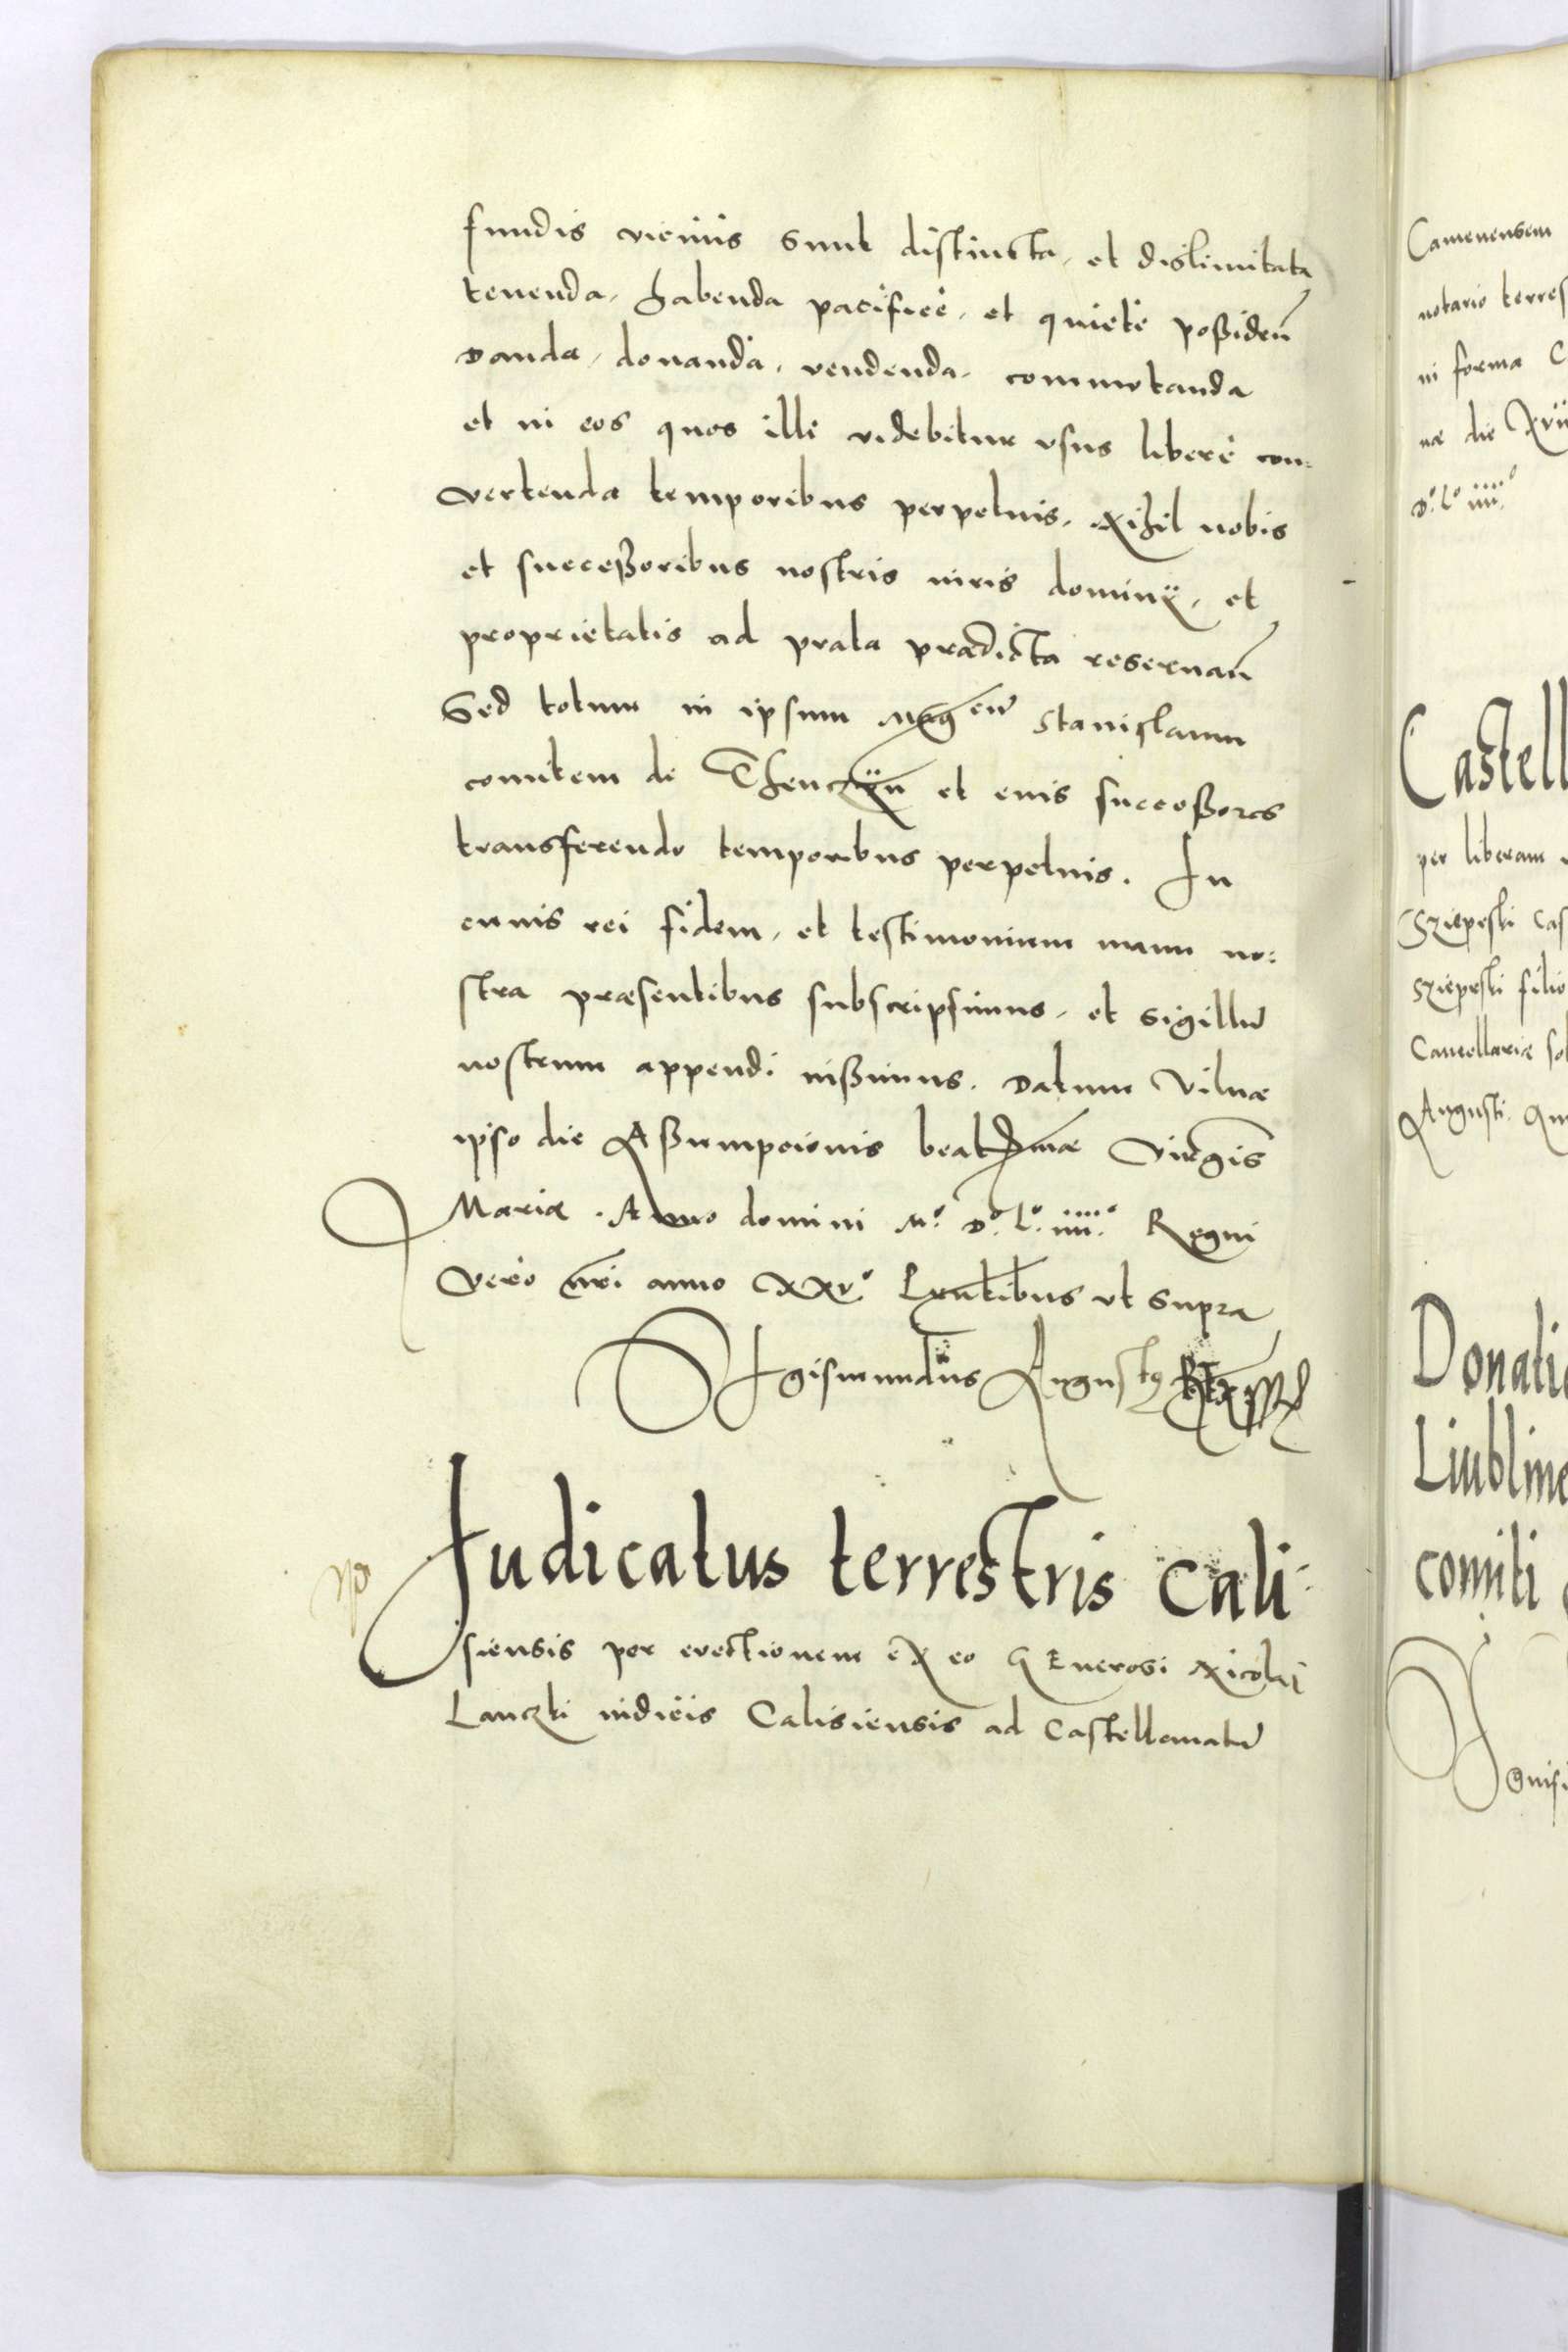 fundis vicinis sunt distincta, et dislimitata
tenenda, habenda pacifice, et quiete poßiden̄
Danda, donanda, vendenda, commutanda
et in eos quos illi videbitur vsus libere con=
vertenda temporibus perpetuis, Nihil nobis
et succeßoribus nostris iuris dominÿ, et
proprietatis ad prata prædicta reseruan̄
Sed totum in ipsum Mag^cum Stanislaum
comitem de Thenczÿn et eius succeßores
transferendo temporibus perpetuis. In
cuius rei fidem, et testimonium manu no=
stra præsentibus subscripsimus, et sigillū
nostrum appendi iußimus. Datum Vilnæ
ipso die Aßumpcionis beatißimæ Virginis
Mariæ. Anno domini M.º D.º L.º iiii.º Regni
Vero nr̄i anno XXv.º Pr̄ntibus vt supra
Sigismundus Augustꝯ Rex sspt
Judicatus terrestris Cali=
siensis per erectionem ex eo GEnerosi Nicolai
Lanczki iudicis Calisiensis ad Castellanatū
Camenensem
notario terres
in forma C
næ die Xvii
D.º L.º iiii.º
Castell
per liberam
Sziepeski Cas
Sziepeski filio
Cancellariæ sol
Augusti. An
Donatio
Liubline
comiti